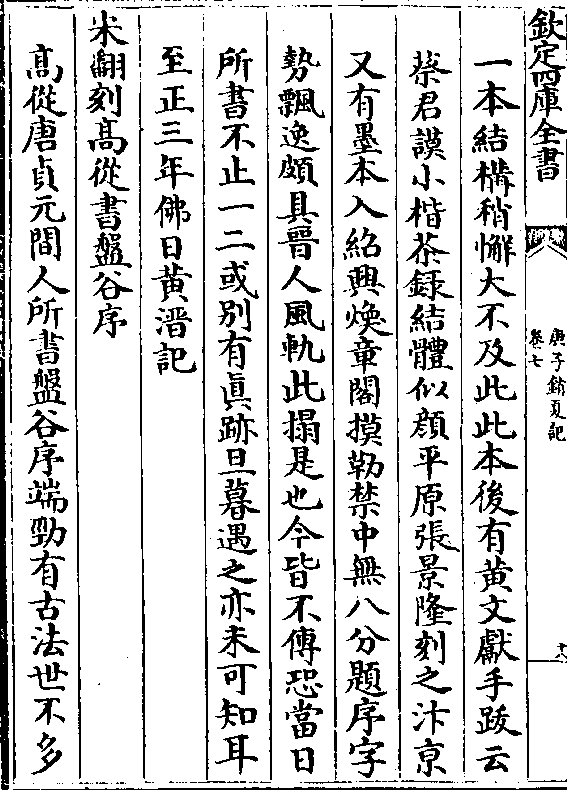 欽定四庫全書
庚子銷夏記
卷七
一本結構稍懈大不及此此本後有黄文獻手跋云
蔡君謨小楷茶録結體似顔平原張景隆刻之汴京
又有墨本入紹興焕章閣摸勒禁中無八分題序字
勢飄逸頗具晉人風軌此搨是也今皆不傳恐當日
所書不止一二或别有真跡旦暮遇之亦未可知耳
至正三年佛日黄溍記
宋翻刻髙從書盤谷序
髙從唐貞元間人所書盤谷序端勁有古法世不多